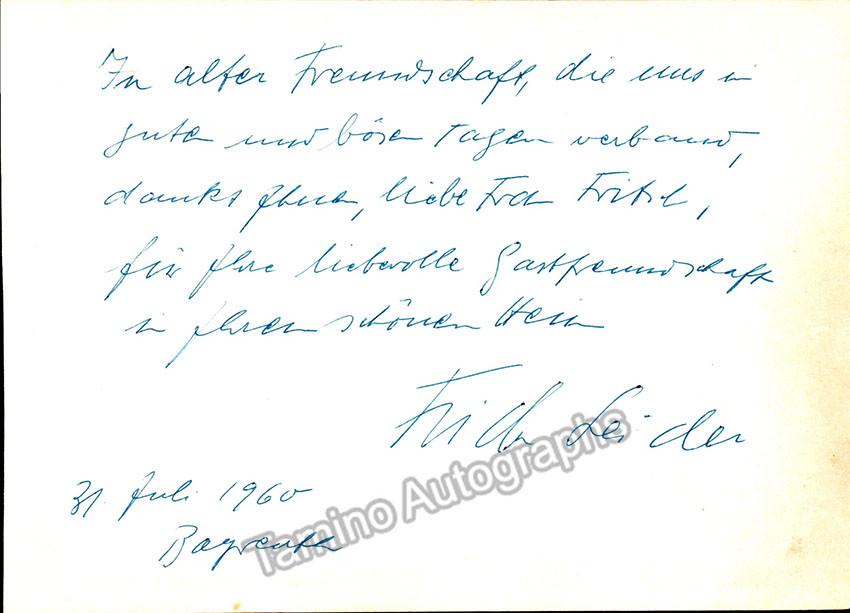 In alter Freundschaft, die uns in
guten und bösen Tagen verband,
danke Ihnen, liebe Frau
für Ihre liebevolle Gastfreundschaft
in Ihrem schönen Heim
Frida Leider
31. Juli 1960
Bayreuth
Tamino Autographs